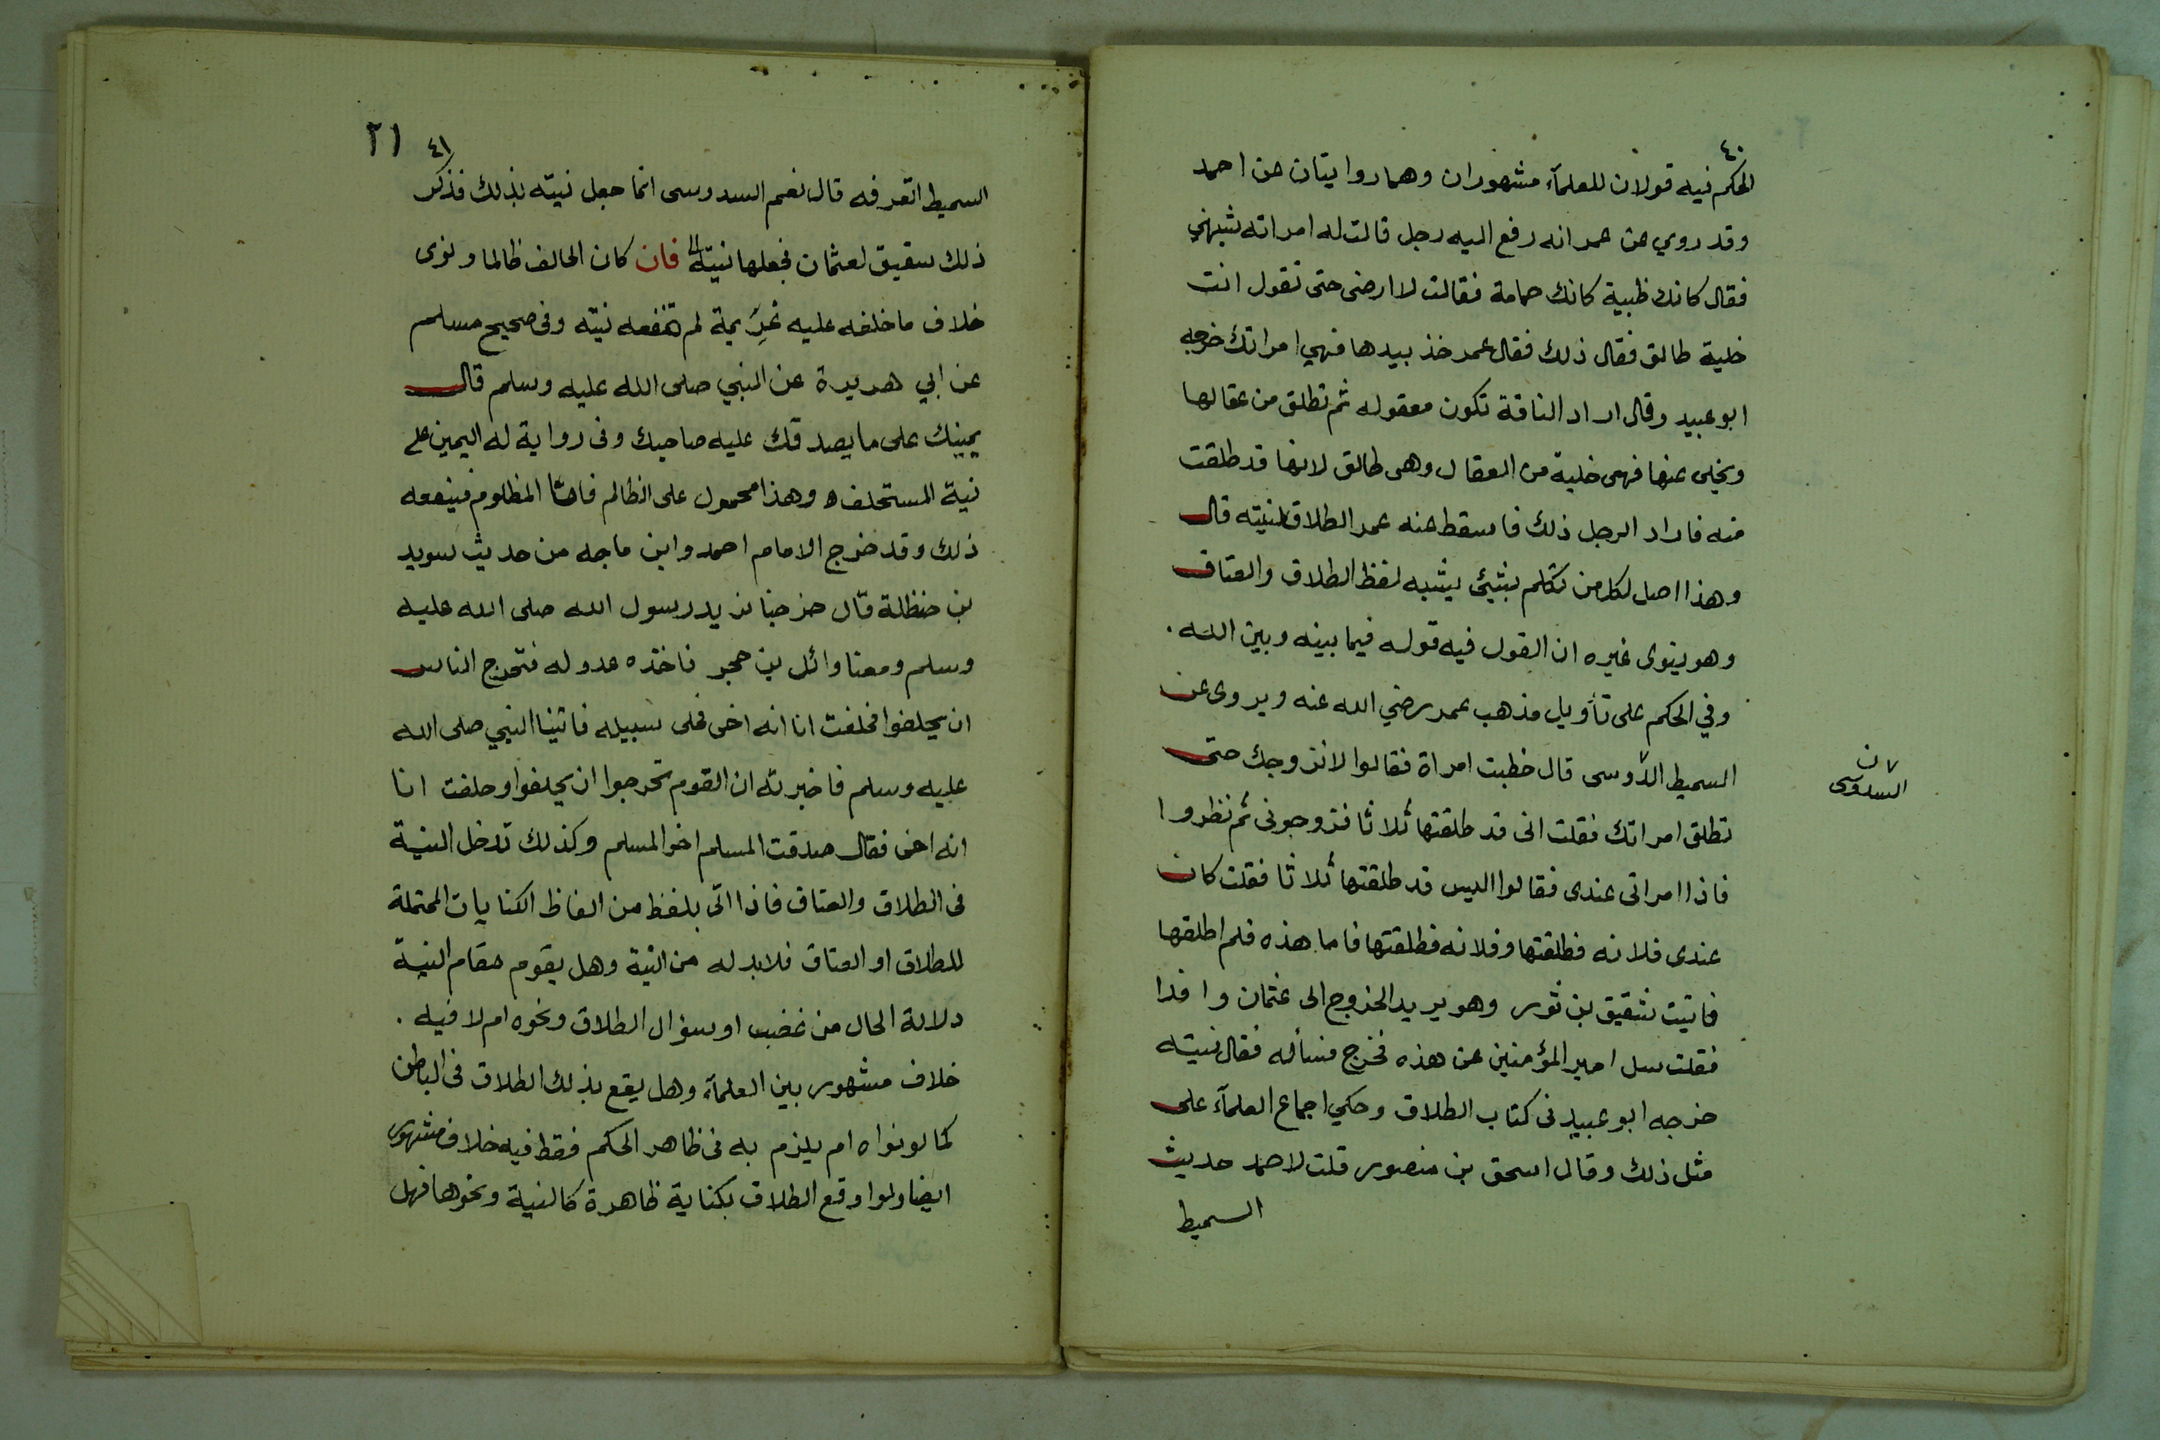 ٤٠
الحكم فيه قولان للعلمآء مشهوران وهما روايتان عن احمد
وقد روي عن عمر انه رفع اليه رجل قالت له امراته شبهني
فقال كانك ظبية كانك حمامة فقالت لا ارضى حتى تقول انت
خلية طالق فقال ذلك فقال عمر خذ بيدها فهي امراتك خرجه
ابو عبيد وقال اراد الناقة تكون معقوله ثم تطلق من عقالها
ويخلى عنها فهى خلية من العقال وهى طالق لانها قد طلقت
منه فاراد الرجل ذلك فاسقط عنه عمر الطلاق لنيته قال
وهذا اصل لكل من تكلم بشيئ يشبه لفظ الطلاق والعتاق
وهو ينوى غيره ان القول فيه قوله فيما بينه وبين الله .
وفي الحكم على تأويل مذهب عمر رضي الله عنه ويروى عن
السميط الدوسى قال خطبت امراة فقالوا لانزوجك حتى
ن
السدوسى
تطلق امراتك فقلت انى قد طلقتها ثلاثا فزوجونى ثم نظروا
فاذا امراتى عندى فقالوا اليس قد طلقتها ثلاثا فقلت كان
عندى فلانه فطلقتها وفلانه فطلقتها فاما هذه فلم اطلقها
فاتيت شقيق بن ثور وهو يريد الخروج الى عثمان وافدا
فقلت سل امير المؤمنين عن هذه فخرج فسأله فقال نيته
خرجه ابو عبيد فى كتاب الطلاق وحكي اجماع العلمآء على
مثل ذلك وقال اسحق بن منصور قلت لاحمد حديث
السميط
٤١
٢١
السميط اتعرفه قال نعم السدوسى انما جعل نيته بذلك فذكر
ذلك شقيق لعثمان فجعلها نيته فان كان الحالف ظالما ونوى
خلاف ما حلفه عليه غريمة لم تنفعه نيته وفى صحيح مسلم
عن ابي هريرة عن النبي صلى الله عليه وسلم قال
يمينك على ما يصدقك عليه صاحبك وفى رواية له اليمين على
نية المستحلف وهذا محمول على الظالم فاما المظلوم فينفعه
ذلك وقد خرج الامام احمد وابن ماجه من حديث سويد
بن حنظلة قال خرجنا نريد رسول الله صلى الله عليه
وسلم ومعنا وائل بن حجر فاخذه عدو له فتحرج الناس
ان يحلفوا فحلفت انا انه اخى فخلى سبيله فاتينا النبي صلى الله
عليه وسلم فاخبرته ان القوم تحرجوا ان يحلفوا وحلفت انا
انه اخى فقال صدقت المسلم اخو المسلم وكذلك تدخل النية
فى الطلاق والعتاق فاذا اتى بلفظ من الفاظ الكنايات المحتملة
للطلاق او العتاق فلابد له من النية وهل يقوم مقام النية
دلالة الحال من غضب او سؤال الطلاق ونحوه ام لا فيه .
خلاف مشهور بين العلمآء وهل يقع بذلك الطلاق فى الباطن
كما لو نواه ام يلزم به فى ظاهر الحكم فقط فيه خلاف مشهور
ايضا ولو اوقع الطلاق بكناية ظاهرة كالنية ونحوها فهل